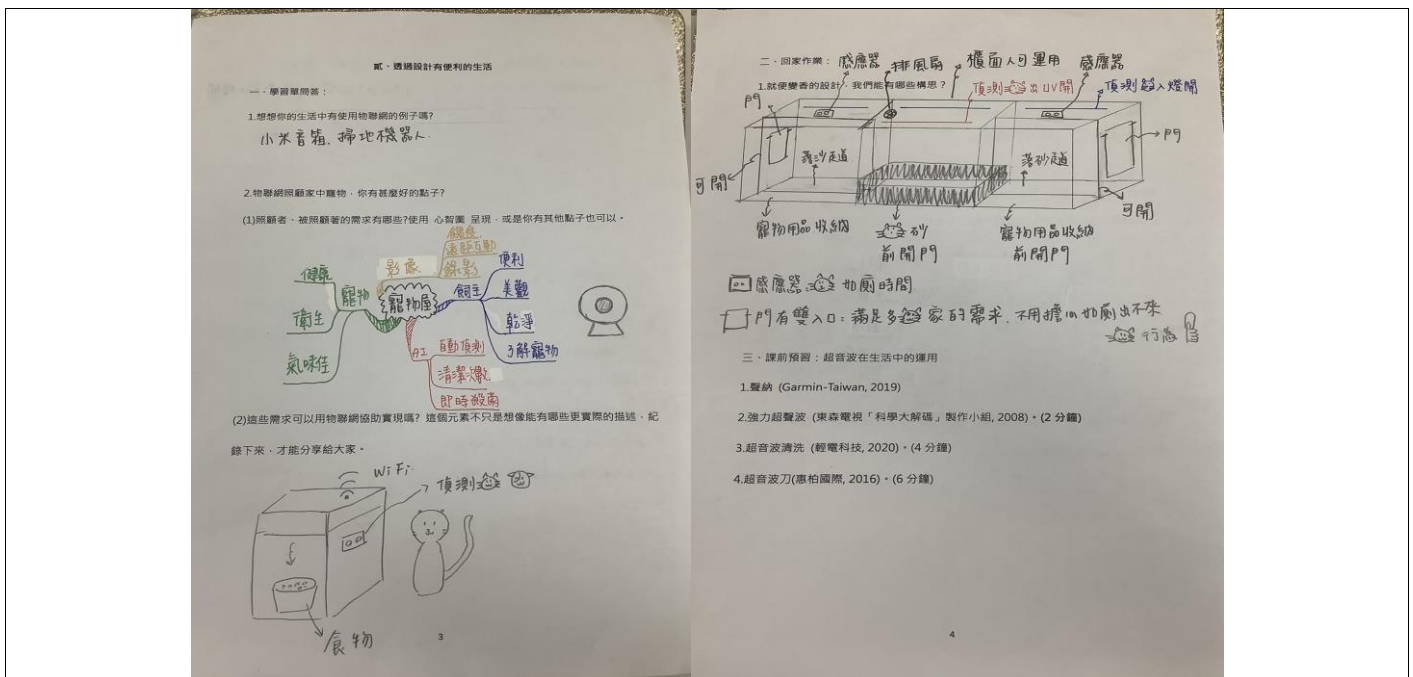 貳、透過設計有便利的生活
一、學習單問答：
1.想想你的生活中有使用物聯網的例子嗎?
小米音箱、掃地機器人.
2.物聯網照顧家中寵物，你有甚麼好的點子?
(1)照顧者、被照顧著的需求有哪些?使用 心智圖 呈現，或是你有其他點子也可以。
寵物屋
影像
遠距互動
錄影
飼主
便利
美觀
乾淨
了解寵物
寵物
健康
衛生
氣味佳
AI
自動偵測
清潔次數
即時殺菌
(2)這些需求可以用物聯網協助實現嗎? 這個元素不只是想像能有哪些更實際的描述，紀
錄下來，才能分享給大家。
WiFi
偵測
食物
3
二、回家作業：
感應器
排風扇
櫃面人可運用
感應器
1.就便變香的設計，我們能有哪些構思？
偵測 出UV開
偵測 入燈開
門
門
落沙走道
落砂走道
可開
可開
寵物用品收納
砂
前開門
寵物用品收納
前開門
感應器 如廁時間
門有雙入口：滿足多 家的需求、不用擔心如廁出不來
行為
三、課前預習：超音波在生活中的運用
1.聲納 (Garmin-Taiwan, 2019)
2.強力超聲波 (東森電視「科學大解碼」製作小組, 2008)。(2 分鐘)
3.超音波清洗 (輕電科技, 2020)。(4 分鐘)
4.超音波刀(惠柏國際, 2016)。(6 分鐘)
4